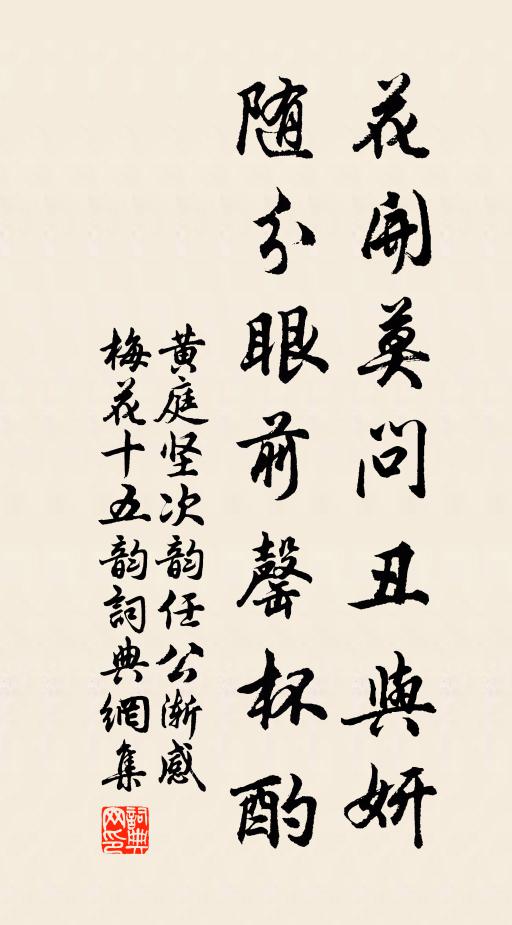 花開莫问丑與妍
随分眼前罄杯酌
黄庭坚次韵任公渐感
梅花十五韵詞典網集
詞典网印